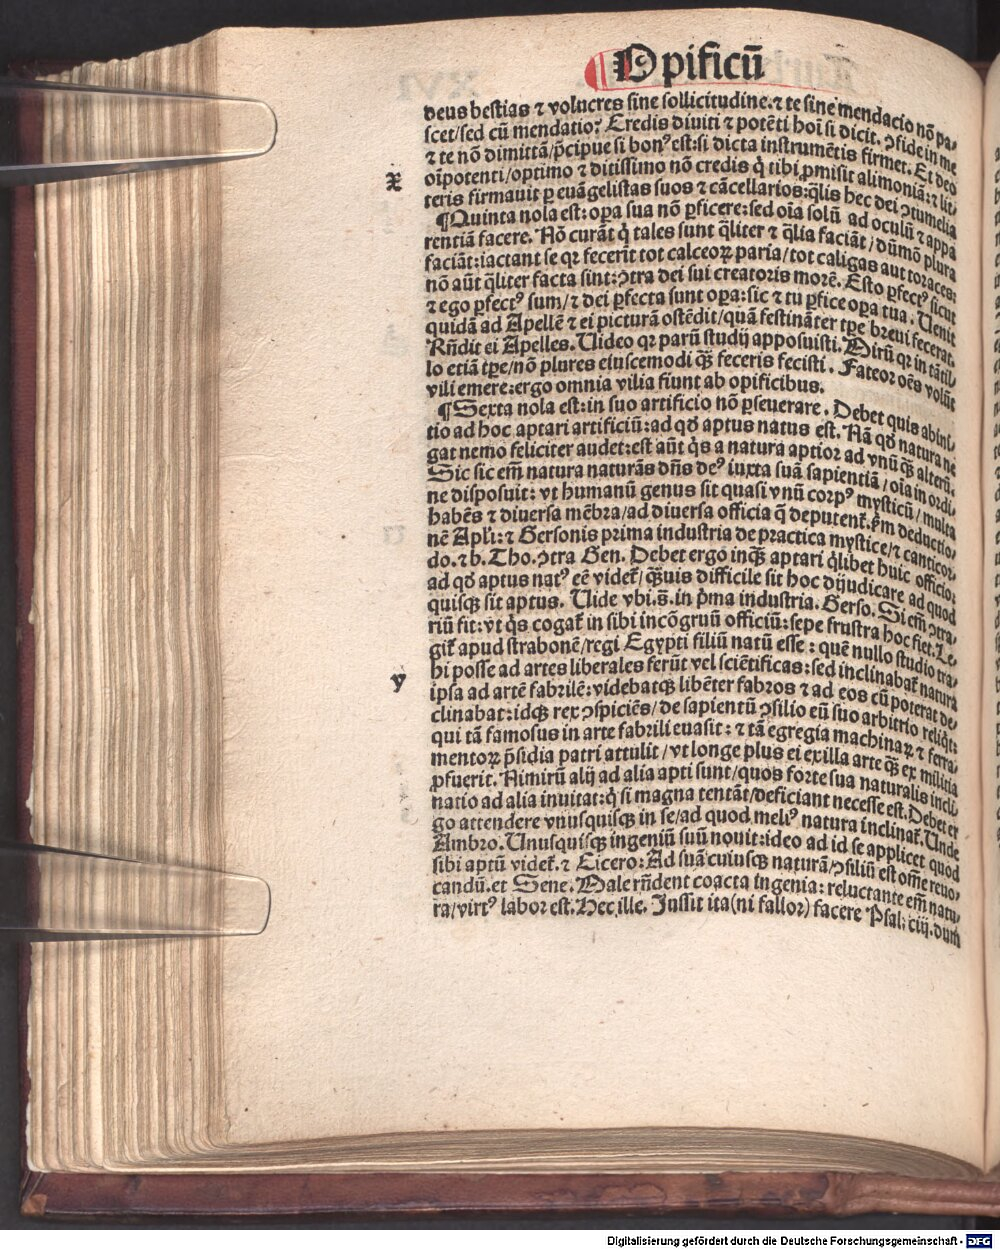 Opificū
deus bestias ⁊ volucres sine sollicitudine.⁊ te sine mendacio nō pa-
scet/sed cū mendatio? Credis diuiti ⁊ potēti hoī si dicit. ꝯfide in me
⁊ te nō dimittā/p̄cipue si bonꝰ est:si dicta instrumētis firmet. Et deo
oīpotenti/optimo ⁊ ditissimo nō credis q̇ tibi ꝓmisit alimoniā:⁊ lit/
teris firmauit ꝑ euāgelistas suos ⁊ cācellarios:q̄lis hec dei ꝯtumelia
x
¶Quinta nola est:oꝑa sua nō ꝑficere:sed oīa solū ad oculū ⁊ appa
rentiā facere. Nō curāt q̇ tales sunt q̄liter ⁊ q̄lia faciāt/dūmō plura
faciāt:iactant se qꝛ fecerīt tot calceoꝝ paria/tot caligas aut toraces:
nō aūt q̄liter facta sint:ꝯtra dei sui creatoris morē. Esto ꝑfectꝰ sicut
⁊ ego ꝑfectꝰ sum/⁊ dei ꝑfecta sunt oꝑa:sic ⁊ tu ꝑfice oꝑa tua. Uenit
quidā ad Apellē ⁊ ei picturā ostēdit/quā festināter tꝑe bꝛeui fecerat.
Rn̄dit ei Apelles. Uideo qꝛ parū studij apposuisti. Mirū qꝛ in tātil/
lo etiā tꝑe/nō plures eiuscemodi q̄ꝫ feceris fecisti. Fateoꝛ oēs volūt
vili emere:ergo omnia vilia fiunt ab opificibus.
¶Sexta nola est:in suo artificio nō ꝑseuerare. Debet quis ab ini/
tio ad hoc aptari artificiū:ad qđ aptus natus est. Nā qđ natura ne
gat nemo feliciter audet:est aūt q̇s a natura aptioꝛ ad vnū q̄ꝫ alterū.
Sic sic em̄ natura naturās dn̄s deꝰ iuxta suā sapientiā/oīa in oꝛdi-
ne disposuit: vt humanū genus sit quasi vnū coꝛpꝰ mysticū/multa
habēs ⁊ diuersa mēbꝛa/ad diuersa officia q̄ deputent̄.ẜm deductio/
nē Apl̄i:⁊ Gersonis pꝛima industria de practica mystice/⁊ canticoꝛ.
do.⁊ b. Tho.ꝯtra Gen. Debet ergo inq̄ꝫ aptari q̄libet huic officio:
ad qđ aptus natꝰ eē videt̄/q̄ꝫuis difficile sit hoc dijudicare ad quod
quisqꝫ sit aptus. Uide vbi.s̄.in pͥma industria. Gerso. Si em̄ ꝯtra/
riū fit:vt q̇s cogat̄ in sibi incōgruū officiū:sepe frustra hoc fiet. Le/
git̄ apud strabonē/regi Egypti filiū natū esse: quē nullo studio tra/
y
hi posse ad artes liberales ferūt vel sciētificas:sed inclinabat̄ natura
ipsa ad artē fabꝛilē:videbatqꝫ libēter fabꝛos ⁊ ad eos cū poterat de/
clinabat:idqꝫ rex ꝯspiciēs/de sapientū ꝯsilio eū suo arbitrio reliq̇t:
qui tā famosus in arte fabꝛili euasit: ⁊ tā egregia machinaꝝ ⁊ ferra/
mentoꝝ p̄sidia patri attulit/vt longe plus ei ex illa arte q̄ꝫ ex militia
ꝓfuerit. Nimirū alij ad alia apti sunt/quos foꝛte sua naturalis incli
natio ad alia inuitat:q̇ si magna tentāt/deficiant necesse est. Debet er
go attendere vnusquisqꝫ in se/ad quod meliꝰ natura inclinat̄. Unde
Ambꝛo. Unusquisqꝫ ingeniū suū nouit:ideo ad id se applicet quod
sibi aptū videt̄.⁊ Cicero:Ad suā cuiusqꝫ naturā/ꝯsiliū est om̄e reuo/
candū.et Sene. Male rn̄dent coacta ingenia: reluctante em̄ natu/
ra/virtꝰ laboꝛ est. Hec ille. Iussit ita(ni falloꝛ)facere Psal: ciij. dum
Digitalisierung gefördert durch die Deutsche Forschungsgemeinschaft - DFG